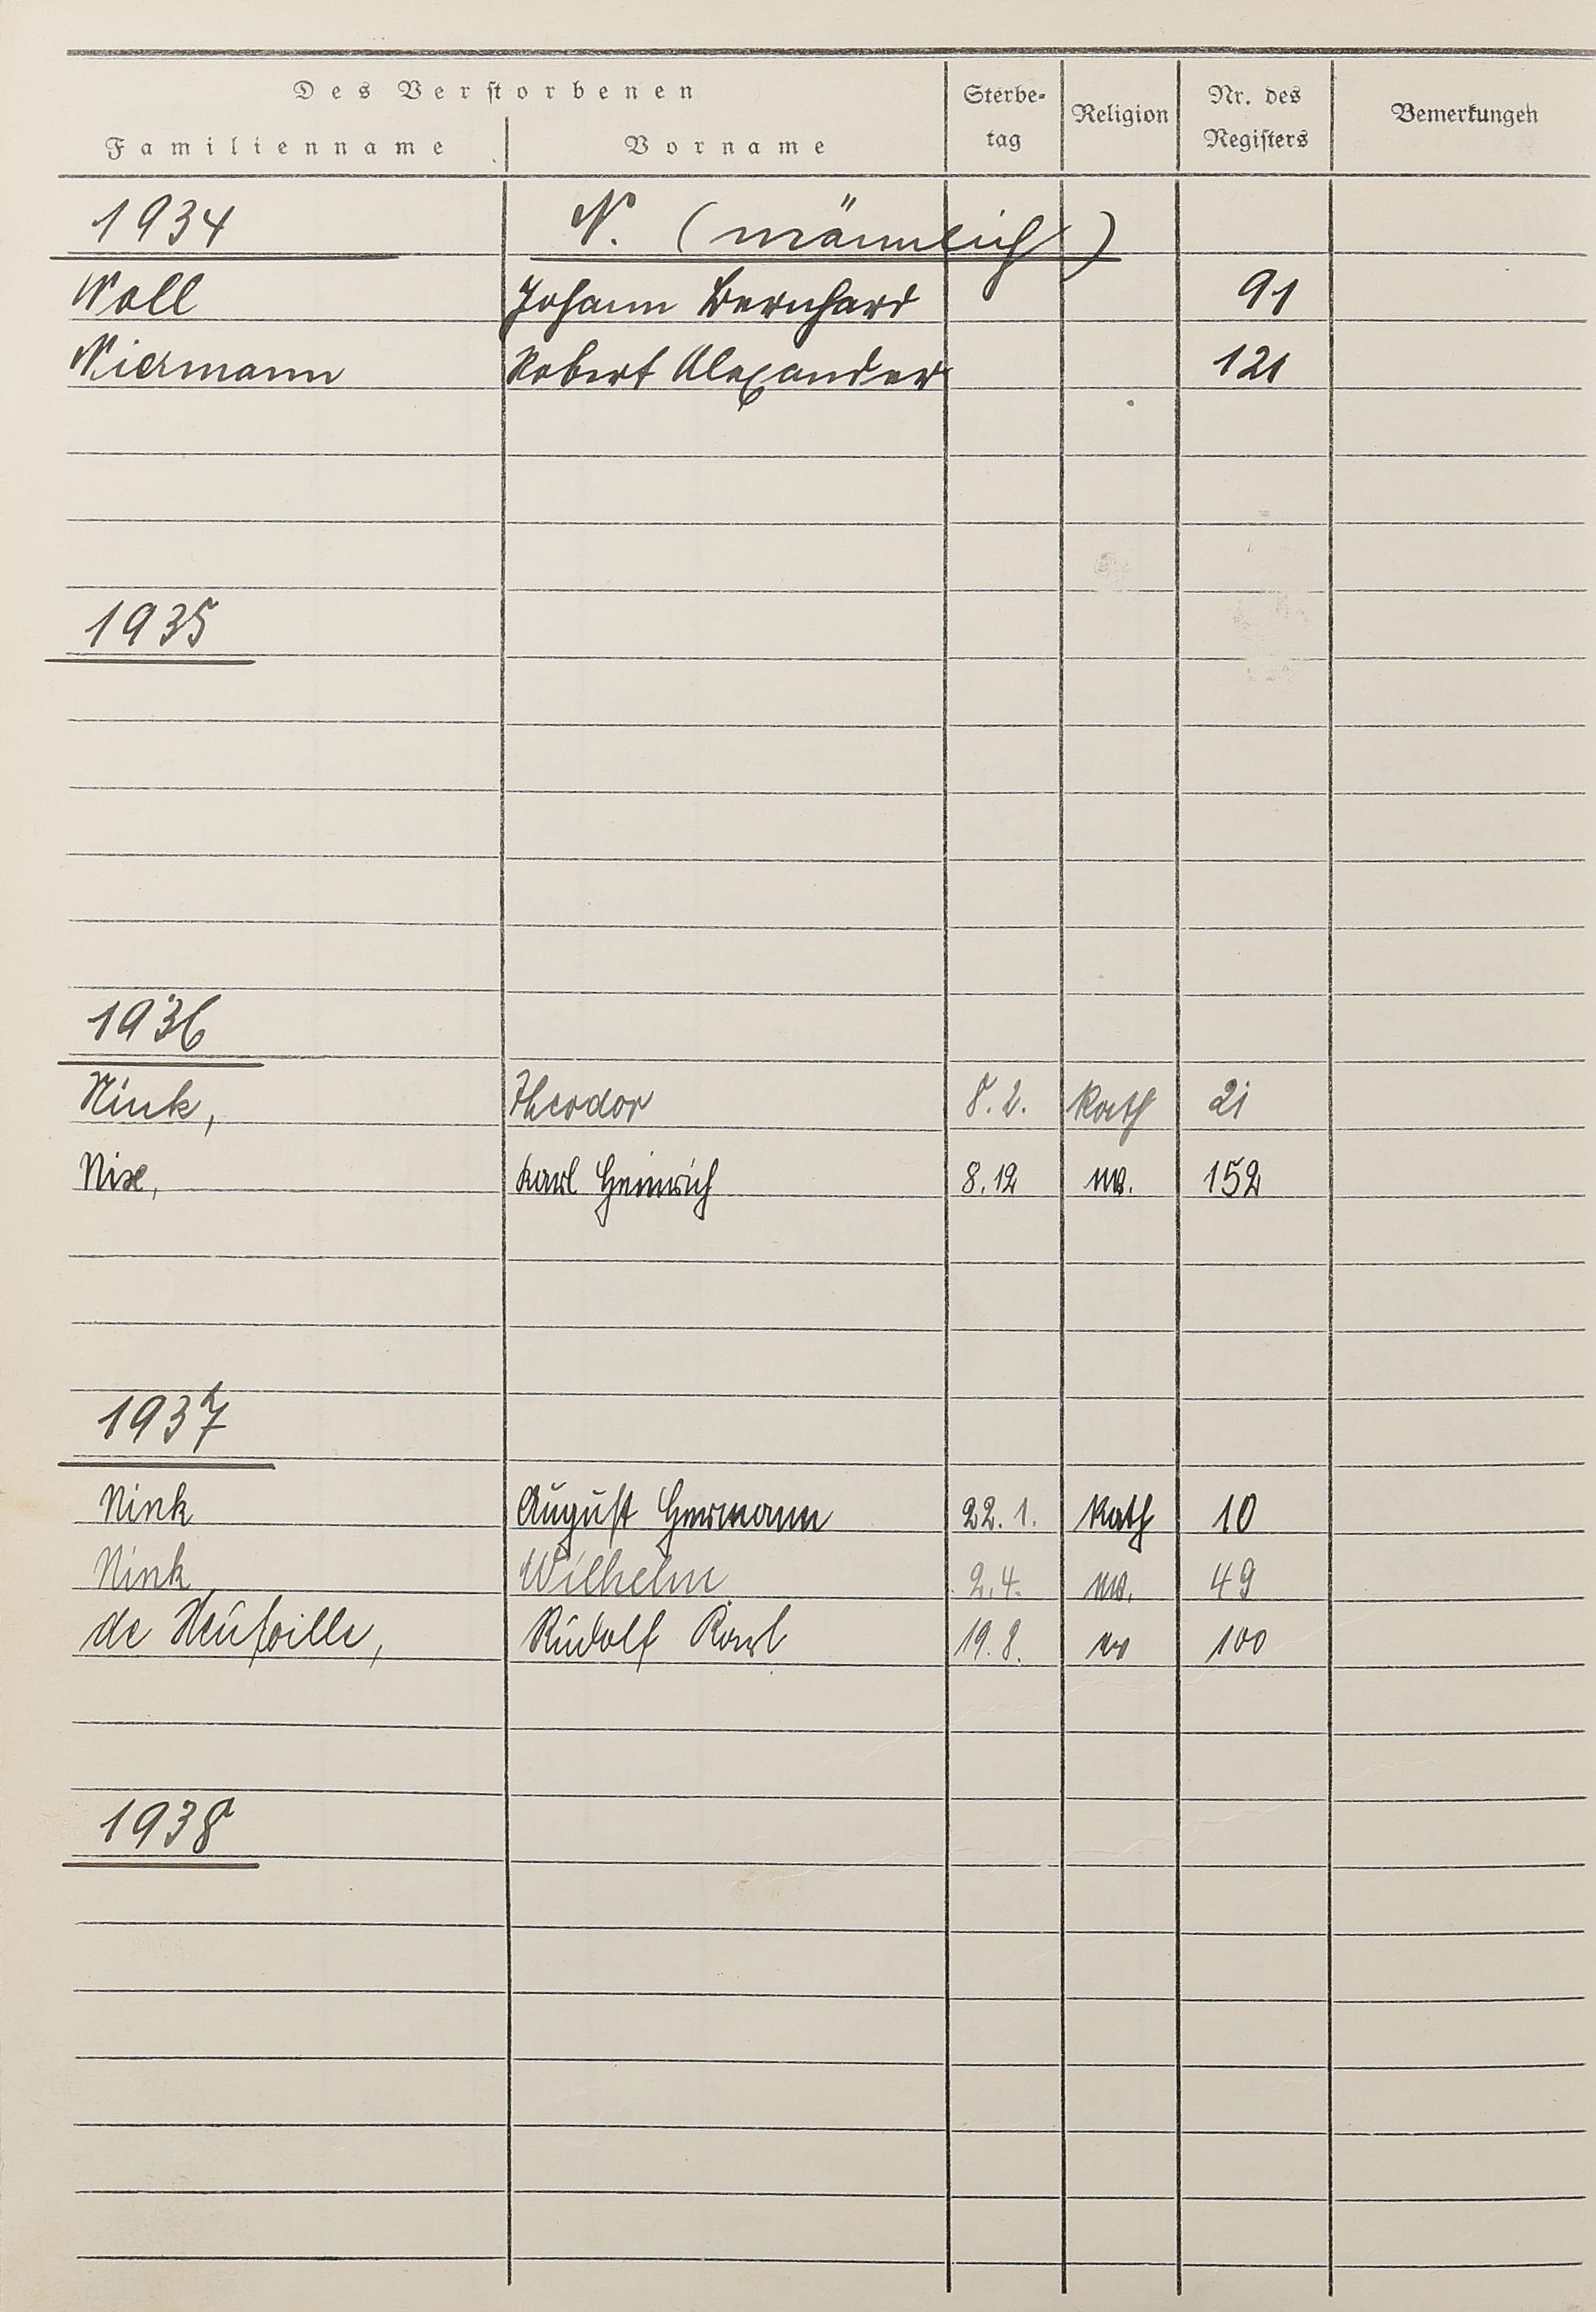 Des Verstorbenen
Familienname Vorname Sterbe-tag Religion Nr. des Registers Bemerkungen
1934 N. (männlich)
Noll Johann Bernhard 91
Niermann Robert Alexander 121
1935
1936
Nink, Theodor 8.2. Kath 21
Nix, Karl Heinrich 8.12 ev. 152
1937
Nink August Hermann 22.1. Kath 10
Nink Wilhelm 2.4. ev. 49
de Neufville, Rudolf Karl 19.8. ev 100
1938